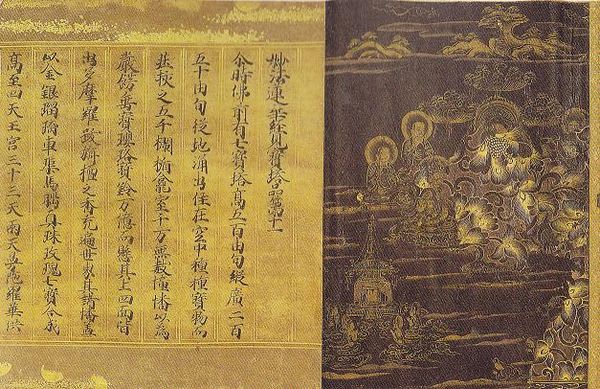 妙法蓮華經見寶塔品第十一
尒時佛前有七寶塔高五百由旬縱廣二百
五十由旬從地涌出住在空中種種寶物而
莊挍之五千欄楯龕室千万無數幢幡以為
嚴飾垂寶瓔珞寶鈴万億而懸其上四面皆
出多摩羅跋栴檀之香充遍世界其諸幡蓋
以金銀瑠璃車𤦲馬瑙真珠玫瑰七寶合成
高至四天王宮三十三天雨天曼陀羅華供